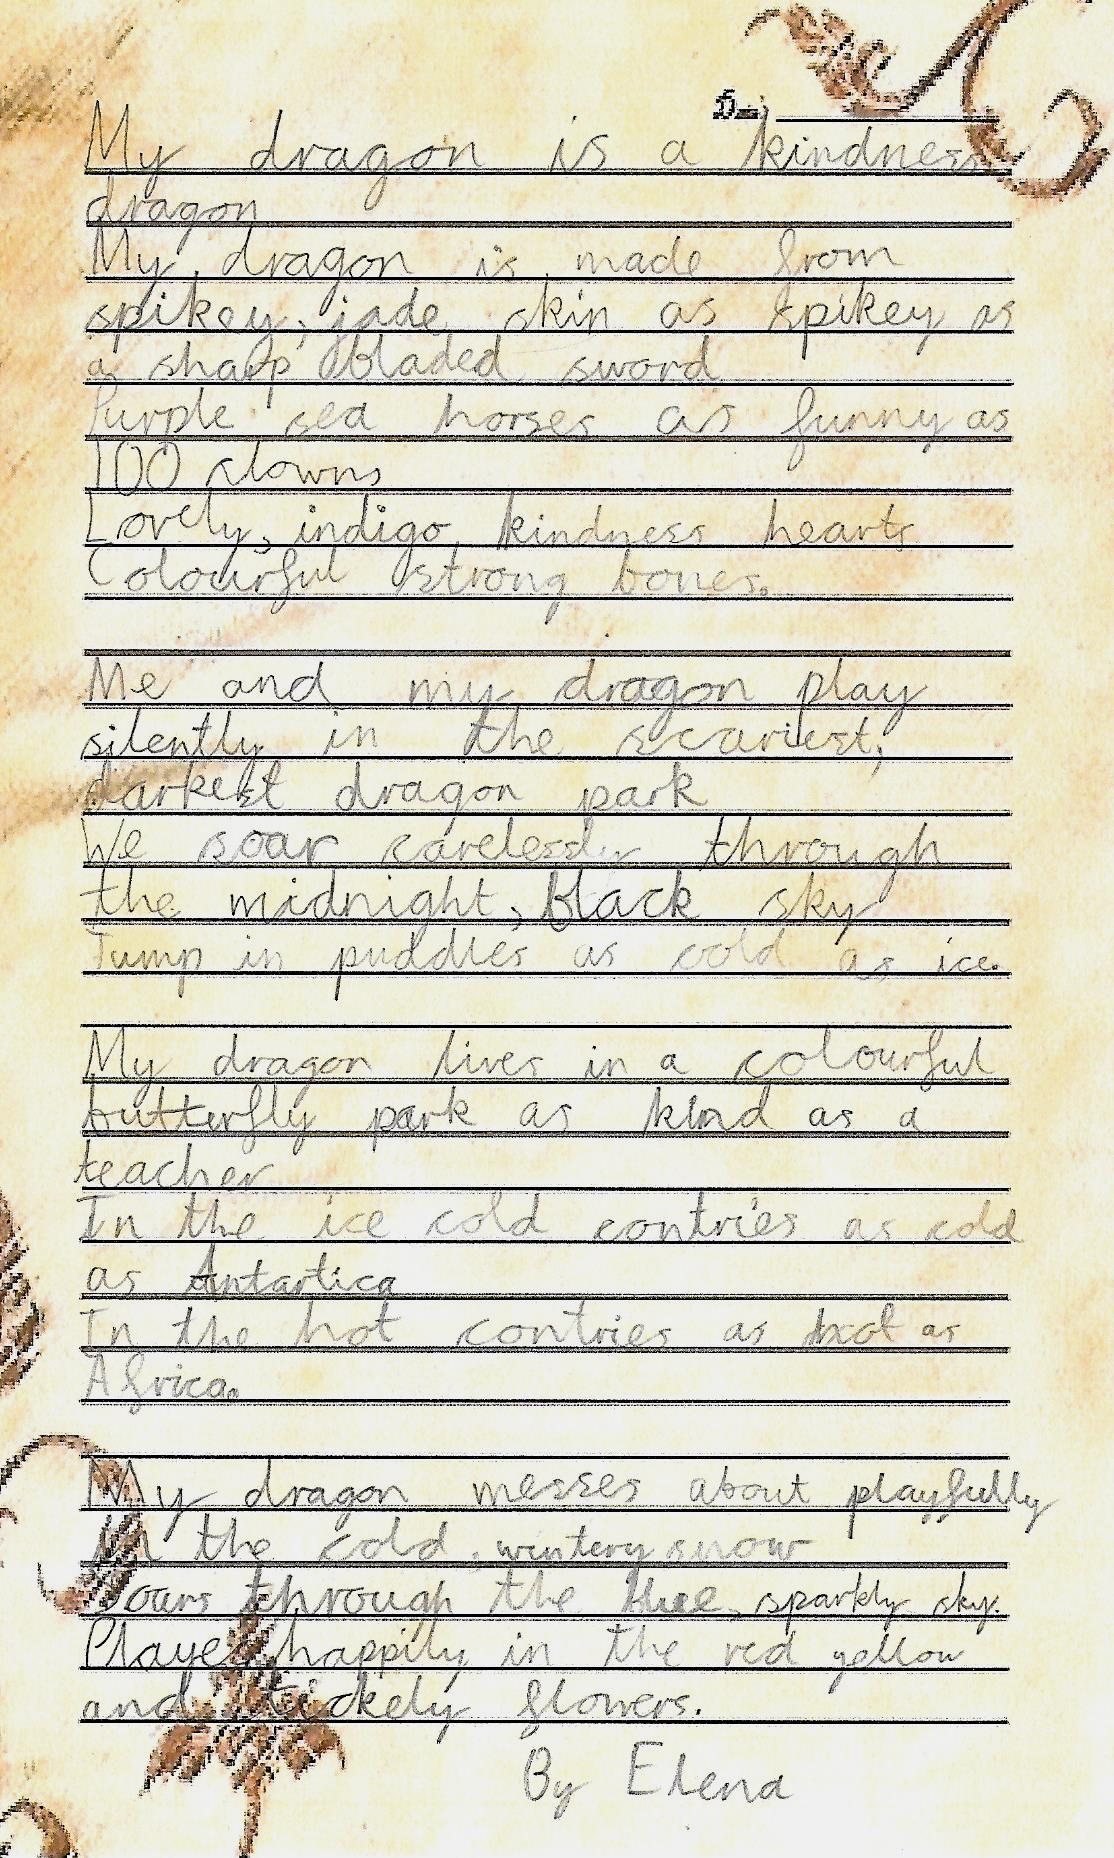 My dragon is a kindness
dragon
My dragon is made from
spikey, jade skin as spikey as
a sharp bladed sword
Purple sea horses as funny as
100 clowns
Lovely, indigo kindness hearts
Colourful strong bones.
Me and my dragon play
silently in the scariest,
darkest dragon park
We soar carelessly through
the midnight, black sky
Jump in puddles as cold as ice.
My dragon lives in a colourful
butterfly park as kind as a
teacher
In the ice cold contries as cold
as Antartica
In the hot contries as hot as
Africa.
My dragon messes about playfully
in the cold, wintery snow
Soars through the blue, sparkly sky.
Playes happily in the red yellow
and tickely flowers.
By Elena